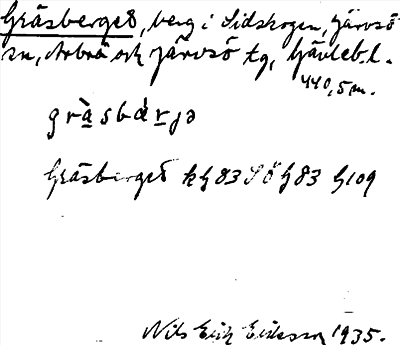 Gräsberget, berg i Lidskogen, Järvsö
sn, Arbrå och Järvsö tg, Gävleb. l.
440,5 m.
grà̱sbä̀ṟjə
Gräsberget kg 83 SÖ G 83 G 109
Nils Erik Eriksson 1935.